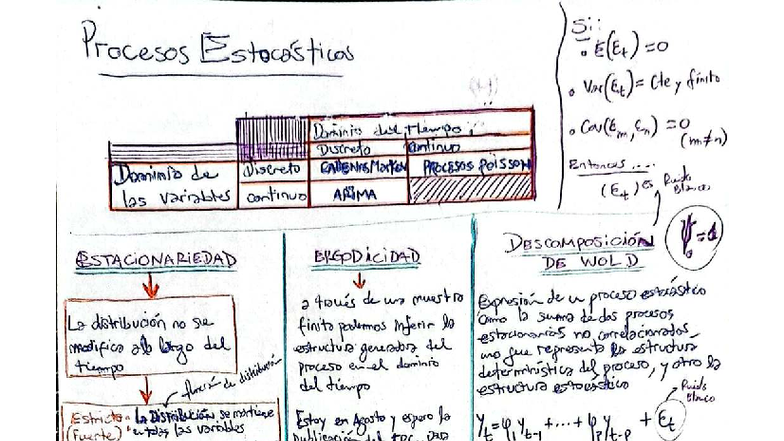 Procesos Estocásticos
Dominio del tiempo
Discreto continuo
Dominio de las variables
Discreto CADENAS MARKOV PROCESOS POISSON
continuo ARIMA
Si:
E(εt) = 0
Var(εt) = cte y finito
Cov(εm, εn) = 0
(m≠n)
Entonces ...
(εt) es Ruido Blanco
ESTACIONARIEDAD
La distribución no se
modifica a lo largo del
tiempo
función de distribución
Estricta: La DISTRIBUCIÓN se mantiene
(fuerte) en todas las variables
ERGODICIDAD
a través de una muestra
finita podemos inferir la
estructura generadora del
proceso en el dominio
del tiempo
Estoy en Agosto y espero la
publicación del
DESCOMPOSICIÓN
DE WOLD
Expresión de un proceso estocástico
como la suma de dos procesos
estacionarios no correlacionados,
uno que representa la estructura
determinística del proceso, y otro la
estructura estocástica
Ruido
Blanco
Yt = φ1 Yt-1 + ... + φp Yt-p + εt